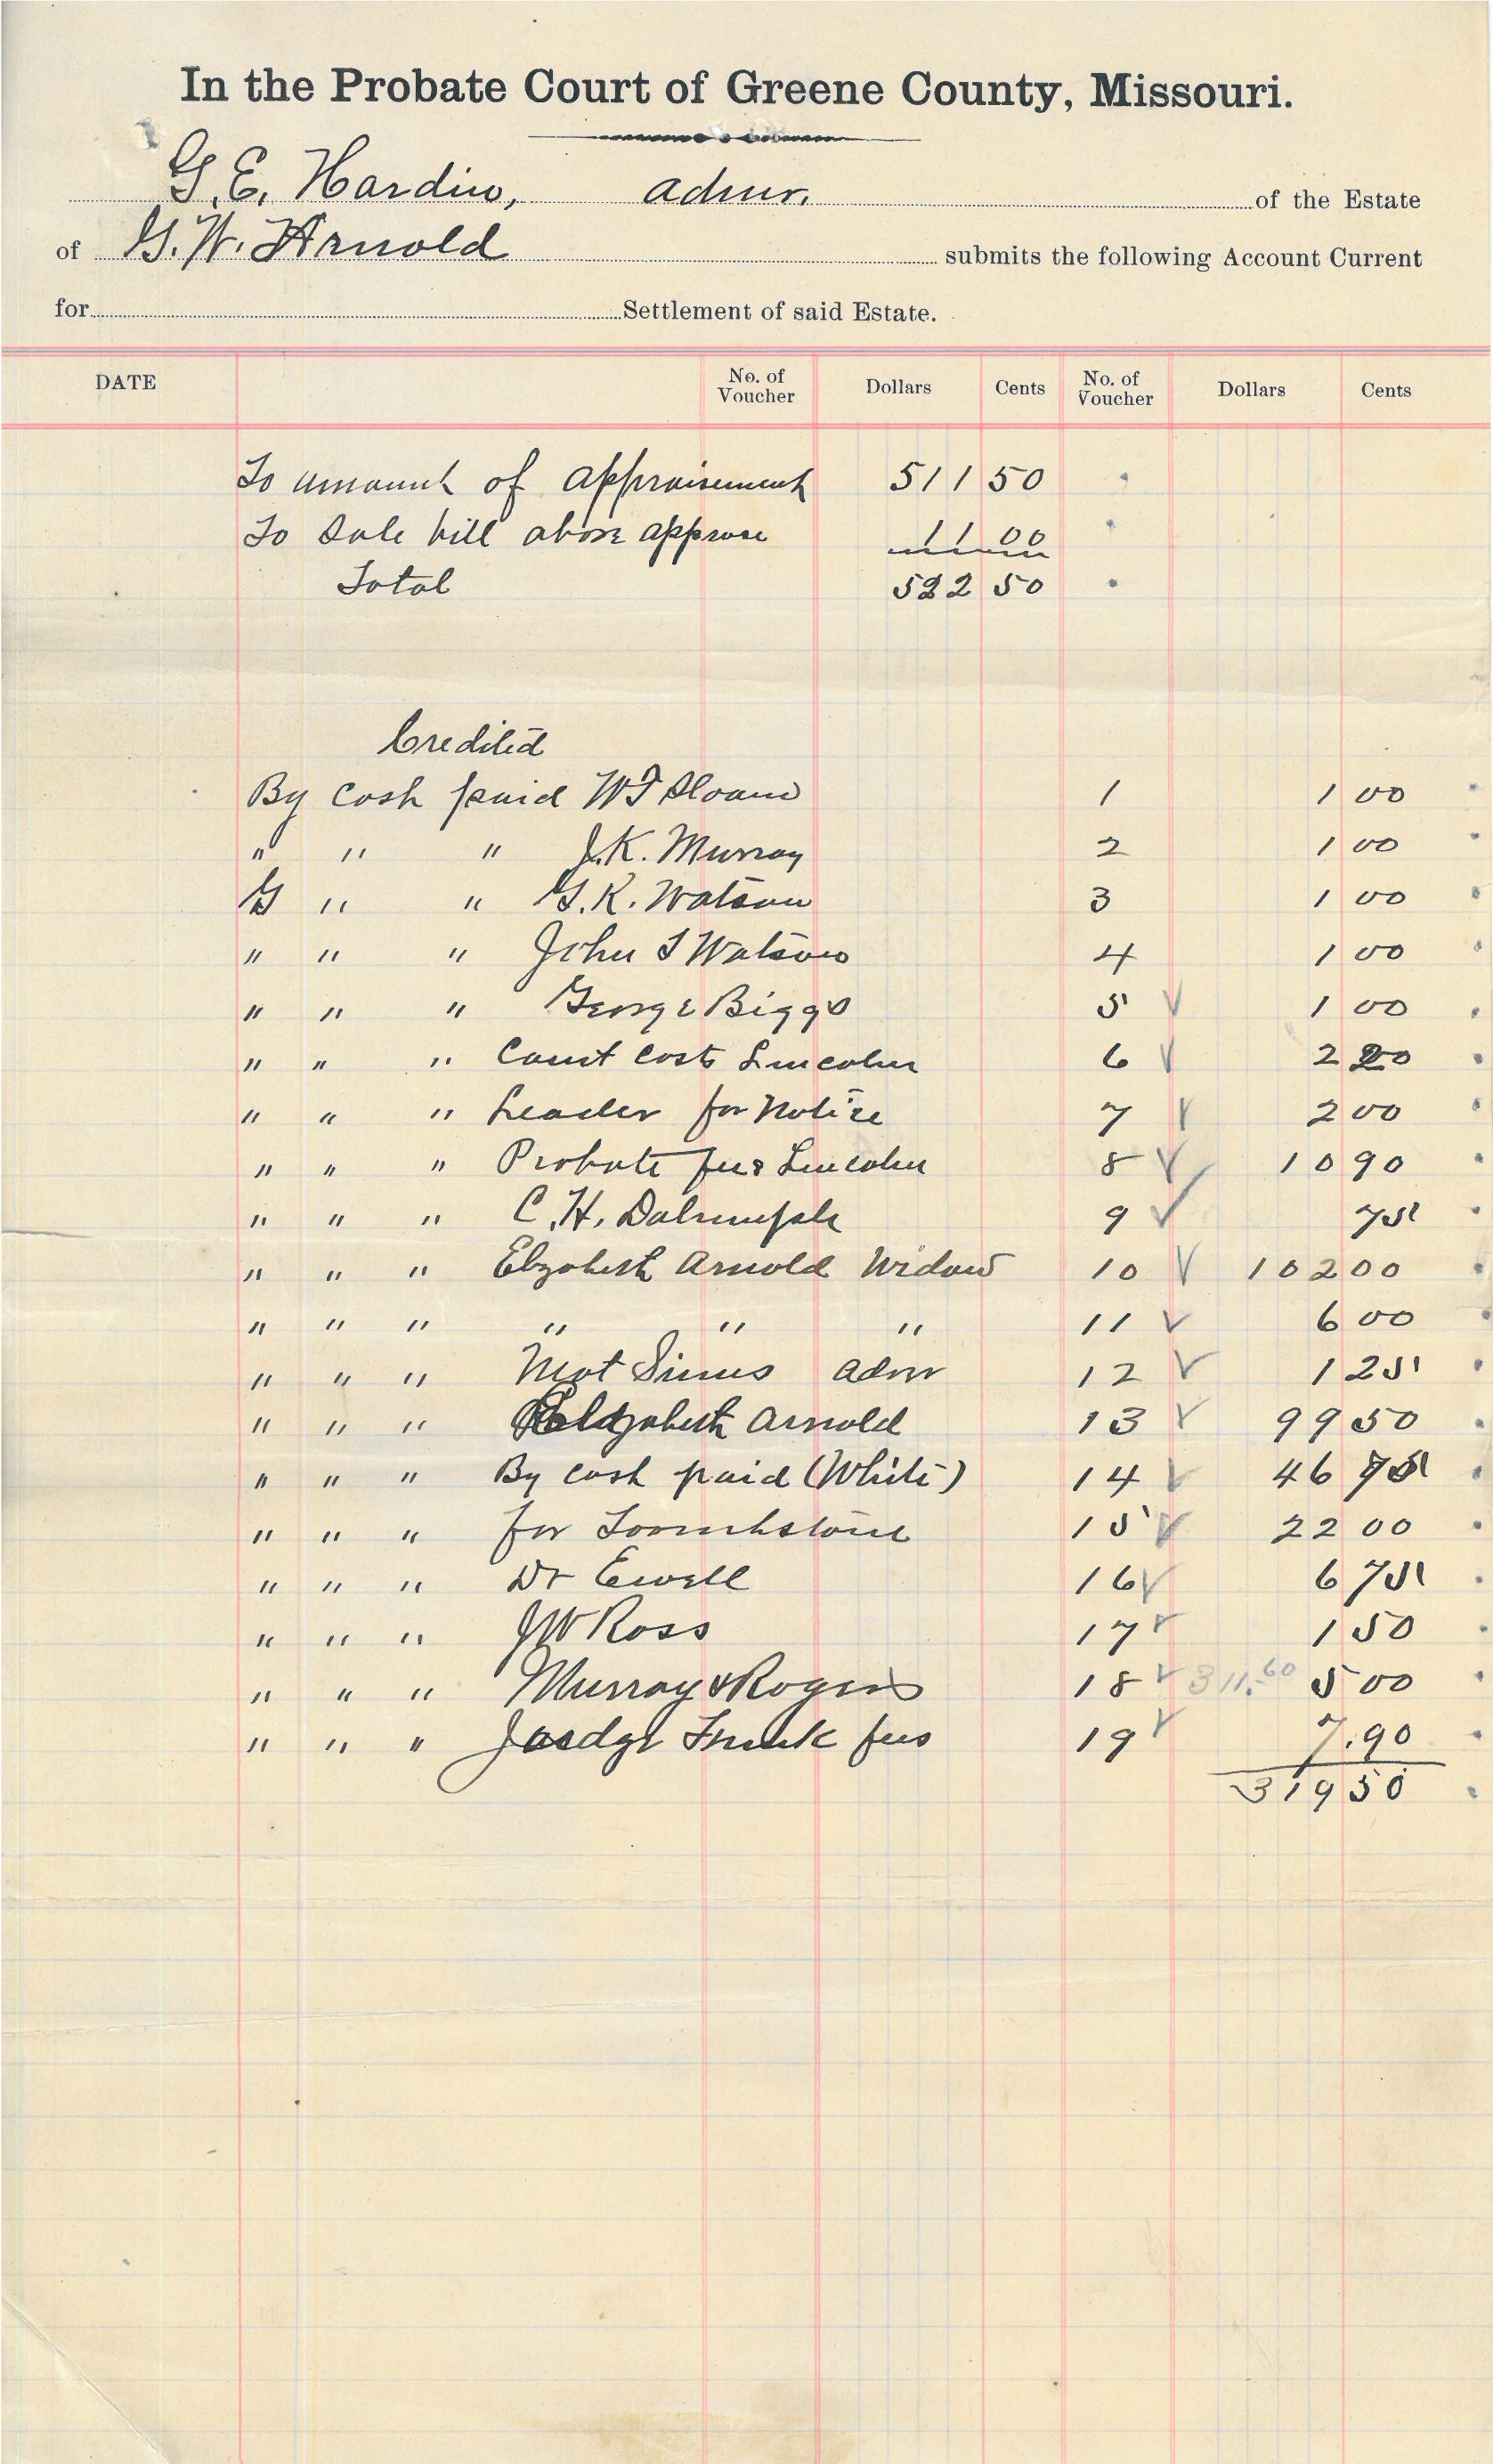 In the Probate Court of Greene County, Missouri.
G. E. Hardin, admr. of the Estate
of G. W. Arnold submits the following Account Current
for Settlement of said Estate.
DATE No. of Voucher Dollars Cents No. of Voucher Dollars Cents
To amount of appraisement 511 50
To Sale bill above apprase 11 00
Total 522 50
Credited
By cash paid W F Sloane 1 1 00
" " " J. K. Murray 2 1 00
" " G. K. Watson 3 1 00
" " " John T Watson 4 1 00
" " " George Biggs 5 1 00
" " " Court Costs Lincoln 6 2 20
" " " Leader for Notice 7 2 00
" " " Probate fees Lincoln 8 10 90
" " " C. H. Dalrumple 9 75
" " " Elizabeth Arnold Widow 10 102 00
" " " " " " 11 6 00
" " " Mat Simms admr 12 1 25
" " " Elizabeth Arnold 13 99 50
" " " By cash paid (White) 14 46 75
" " " for Toombstone 15 22 00
" " " Dr Ewell 16 6 75
" " " J W Ross 17 1 50
" " " Murray & Rogers 18 311.60 5 00
" " " Judge fees 19 7.90
319 50